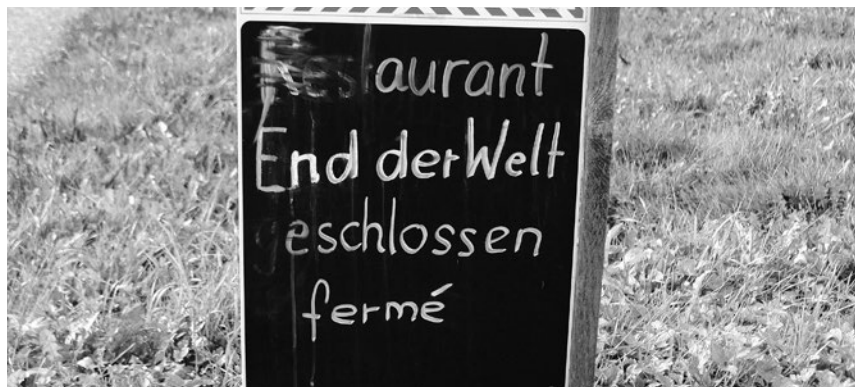 Restaurant
End der Welt
geschlossen
fermé